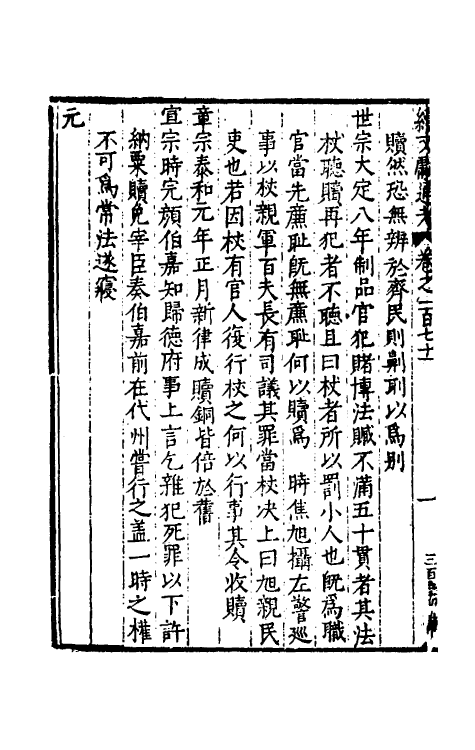 續文獻通考 卷之一百七十一
贖然恐無辨於齊民則劓刵以爲别
世宗大定八年制品官犯賭博法贓不滿五十貫者其法
杖聽贖再犯者不聽且曰杖者所以罰小人也旣爲職
官當先㢘耻旣無㢘耻何以贖爲 時焦旭攝左警廵
事以杖親軍百夫長有司議其罪當杖决上曰旭親民
吏也若因杖有官人復行杖之何以行事其令收贖
章宗泰和元年正月新律成贖銅皆倍於舊
宣宗時完顏伯嘉知歸德府事上言乞雜犯死罪以下許
納粟贖免宰臣奏伯嘉前在代州嘗行之盖一時之權
不可爲常法遂寢
元